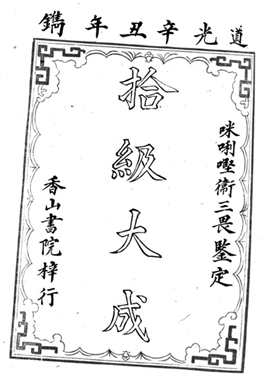 道光辛丑年鐫
咪唎堅衞三畏鑒定
拾級大成
香山書院梓行